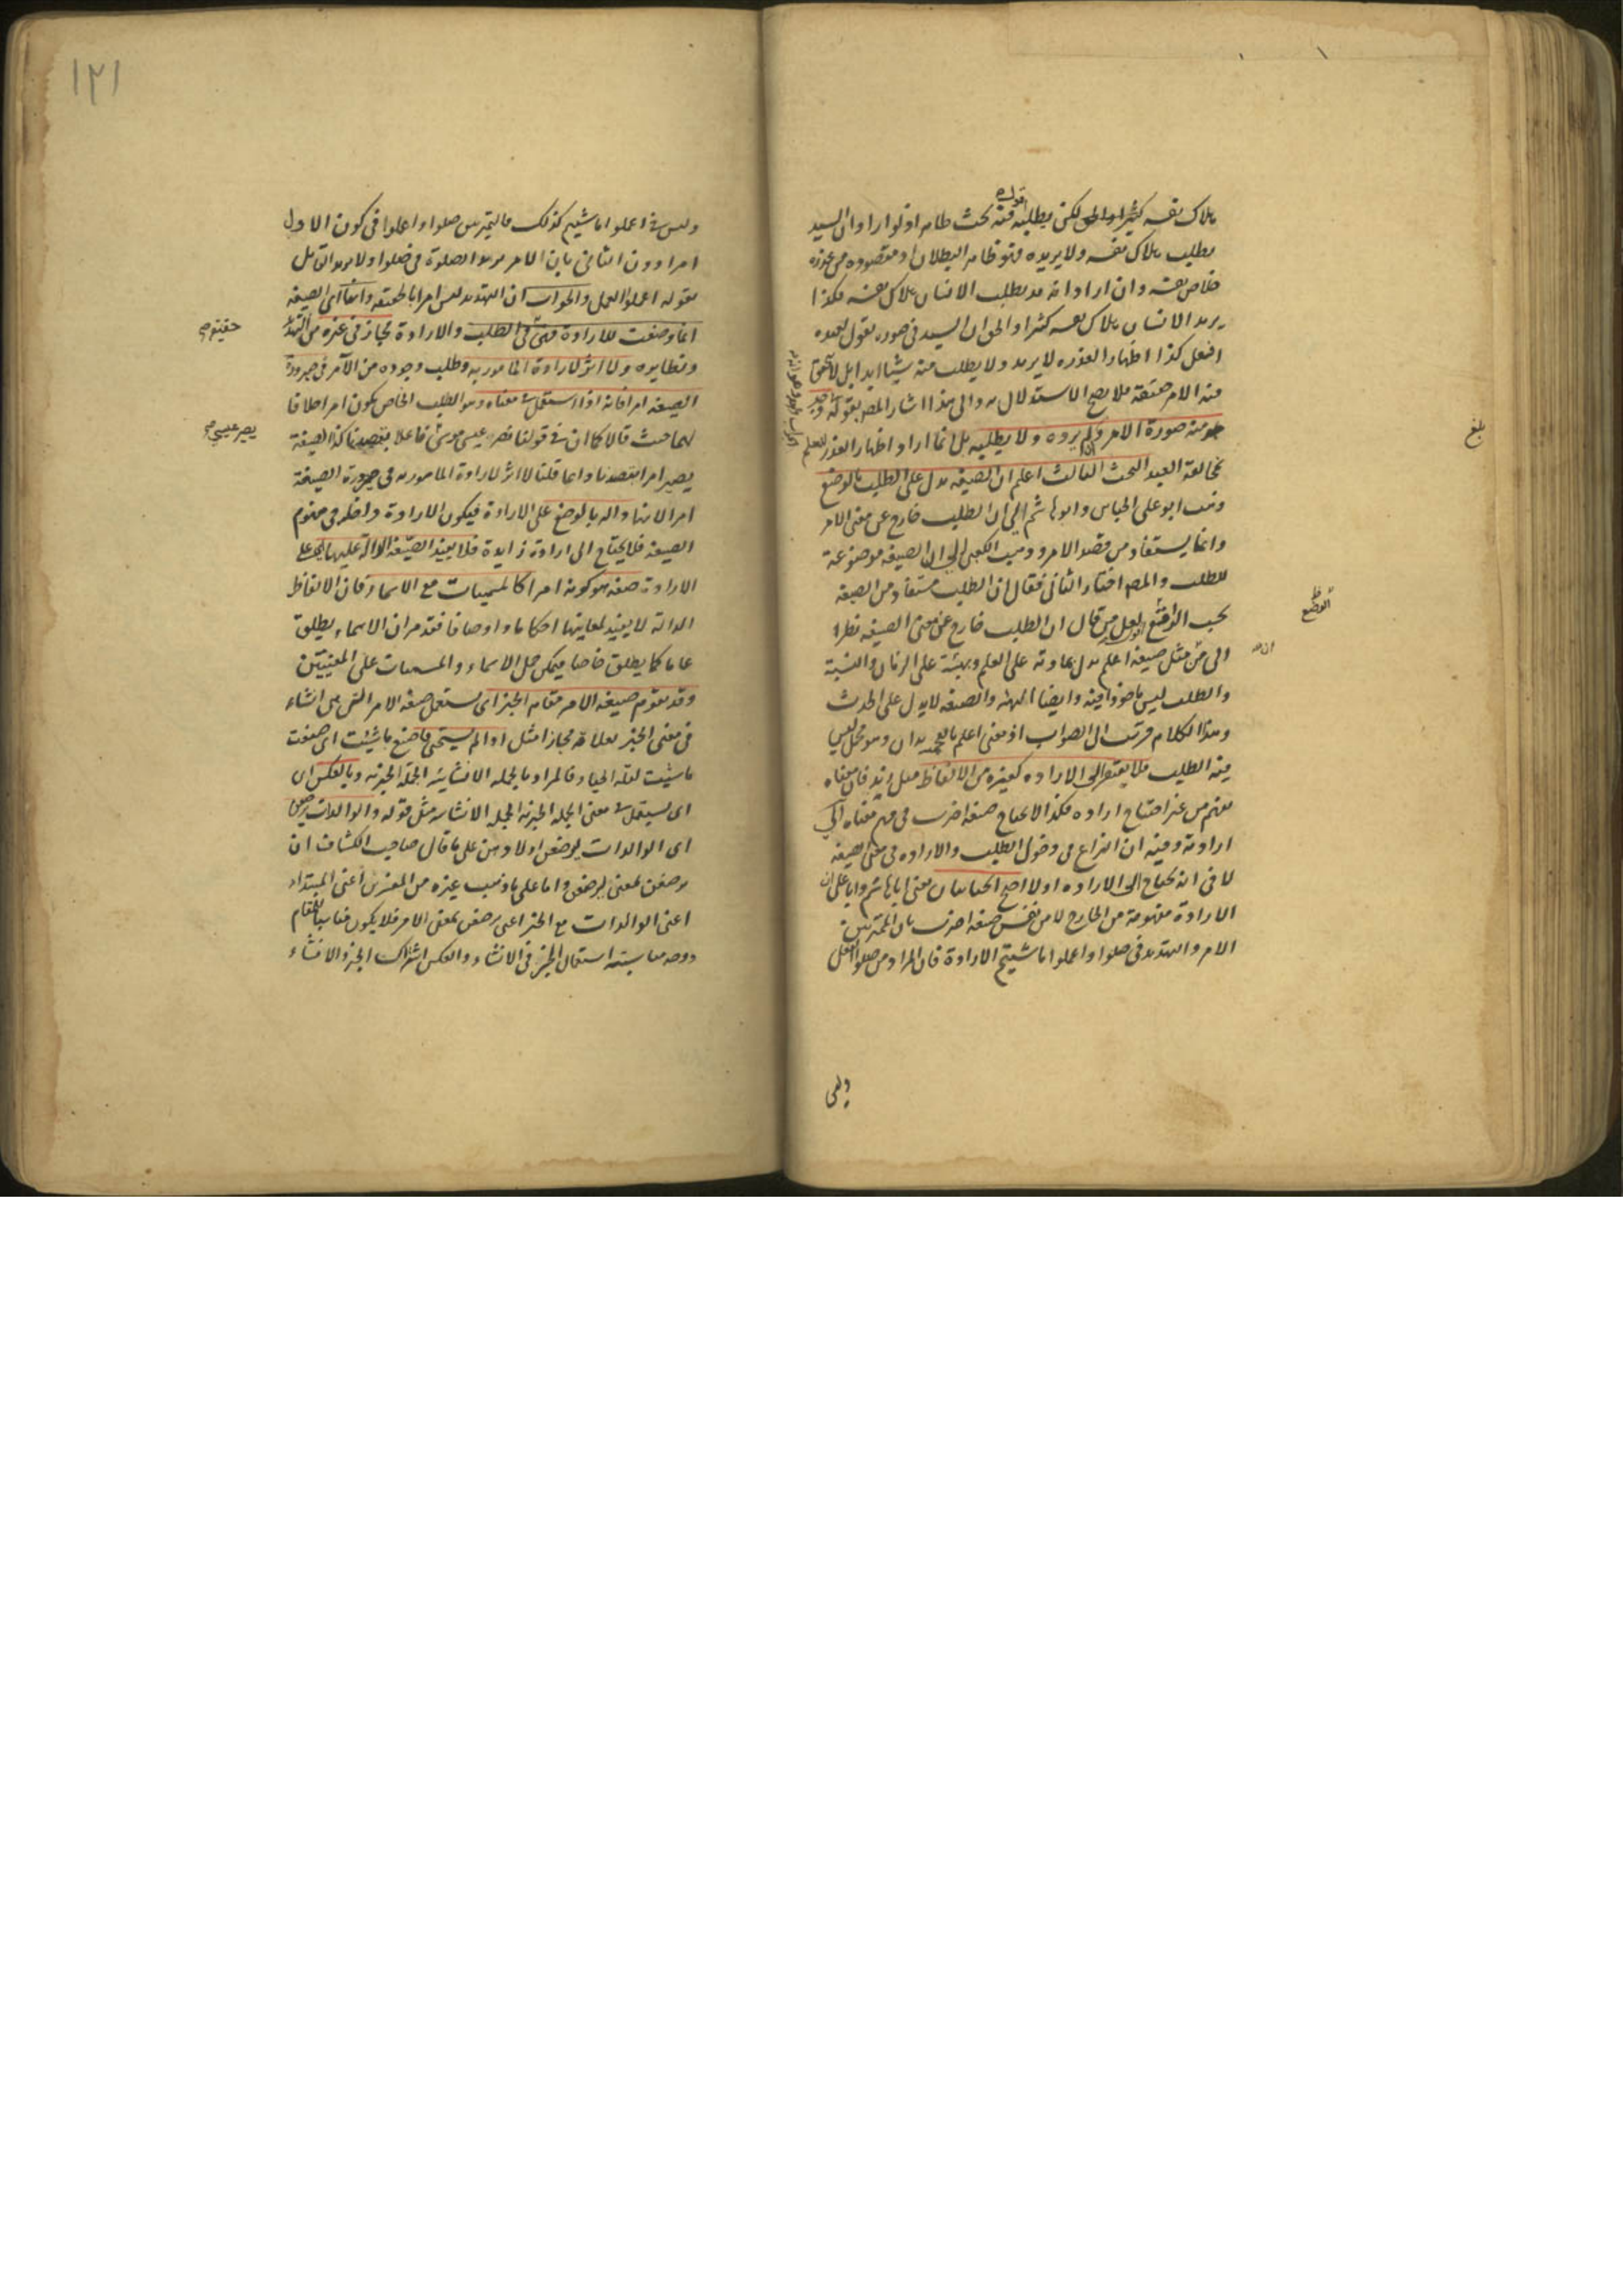 هلاك نفسه كثيرا لكن يطلبه فيه بحث ظاهر اذ لو اراد ان السيد
يطلب هلاك نفسه ولا يريده فهو ظاهر البطلان اذ مقصوده من عذره
خلاص نفسه وان اراد انه قد يطلب الانسان هلاك نفسه فكذا
يريد الانسان هلاك نفسه كثيرا والحق ان السيد في صورة يقول لعبده
افعل كذا اظهارا لعذره لا يريد ولا يطلب منه شيئا ابدا بل لا تحقق
منه الامر حقيقة فلا يصح الاستدلال به والى هذا اشار المص بقوله
منه صورة الامر ولم يرده ولا يطلبه بل انما اراد اظهار العذر للعلم
بمخالفة العبد البحث الثالث اعلم ان الصيغة تدل على الطلب بالوضع
وذهب ابو علي الجبائي وابو هاشم الى ان الطلب خارج عن معنى الامر
وانما يستفاد من قصد الامر وذهب الكعبي الى ان الصيغة موضوعة
للطلب والمص اختار الثاني فقال ان الطلب مستفاد من الصيغة
بحسب الوضع لعل من قال ان الطلب خارج عن معنى الصيغة نظر
الى ان مثل صيغة اعلم تدل بمادته على العلم وبهيئته على الزمان والنسبة
والطلب ليس ماخوذا فيه وايضا الهيئة والصيغة لا يدل على الحدث
وهذا الكلام قريب الى الصواب اذ معنى اعلم
فيه الطلب فلا يفتقر الى الارادة كغيره من الالفاظ مثل زيد فان معناه
يفهم من غير احتياج ارادة فكذا لا يحتاج صيغة اضرب في فهم معناه الى
ارادة وفيه ان النزاع في دخول الطلب والارادة في معنى الصيغة
لا في انه يحتاج الى الارادة او لا احتج الجبائيان يعني ابا هاشم وابا علي ان
الارادة مفهومة من الخارج لا من نفس صيغة اضرب بان المميز بين
الامر والتهديد في صلوا واعملوا ما شيتم الارادة فان المراد من صلوا الفعل
بلغ
الوضع
وليس
١٢١
وليس في اعملوا ما شيتم كذلك فالتميز بين صلوا واعملوا في كون الاول
امرا دون الثاني بان الامر يريد الصلوة في صلوا ولا يريد القائل
بقوله اعملوا العمل والجواب ان التهديد ليس امرا بالحقيقة وانما اي الصيغة
انما وضعت للارادة فهي في الطلب والارادة مجاز في غيره من التهديد
ونظايره ولا اثر لارادة المامور به وطلب وجوده من الآمر في صيرورة
الصيغة امرا فانه اذا استعمل في معناه وهو الطلب الخاص يكون امرا خلافا
لهما حيث قالا كما ان في قولنا ضرب عيسى موسى فاعلا بقصدنا كذا الصيغة
يصير امرا بقصدنا وانما قلنا لا اثر لارادة المامور به في صيرورة الصيغة
امرا لانها دالة بالوضع على الارادة فيكون الارادة داخلة في مفهوم
الصيغة فلا يحتاج الى ارادة زايدة فلا يفيد الصيغة الدالة عليها اي على
الارادة صفة هو كونه امرا كالمسميات مع الاسماء فان الالفاظ
الدالة لا يفيد لمعانيها احكاما واوصافا فقد مر ان الاسماء يطلق
عاما كما يطلق خاصا فيمكن حمل الاسماء والمسميات على المعنيين
وقد تقوم صيغة الامر مقام الخبر اي يستعمل صيغة الامر التي هي انشاء
في معنى الخبر لعلاقة مجازا مثل اذا لم يستحي فاصنع ما شيت اي صنعت
ما شيت لقلة الحياء فالمراد بالجملة الانشائية الجملة الخبرية وبالعكس
اي يستعمل في معنى الجملة الخبرية الجملة الانشائية مثل قوله والوالدات يرضعن
اي الوالدات يرضعن اولادهن على ما قال صاحب الكشاف ان
يرضعن بمعنى ليرضعن واما على ما ذهب غيره من المفسرين اعني المبتداء
اعني الوالدات مع الخبر اعني يرضعن بمعنى الامر فلا يكون مناسبا للمقام
ووجه مناسبة استعمال الخبر في الانشاء والعكس اشتراك الخبر والانشاء
حقيقة
يصير عيسى